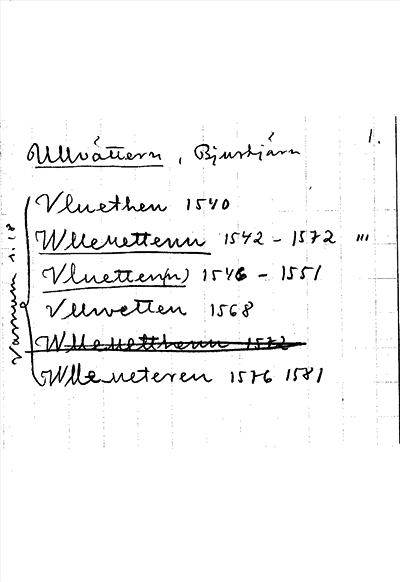 1.
Ullvättern, Bjurtjärn
Vluethen 1540
Wlleuettenn 1542 - 1572 "'
Vluetten(n) 1546 - 1551
Vllvetten 1568
Wlleuetthenn 1572
Wlleueteren 1576 1581